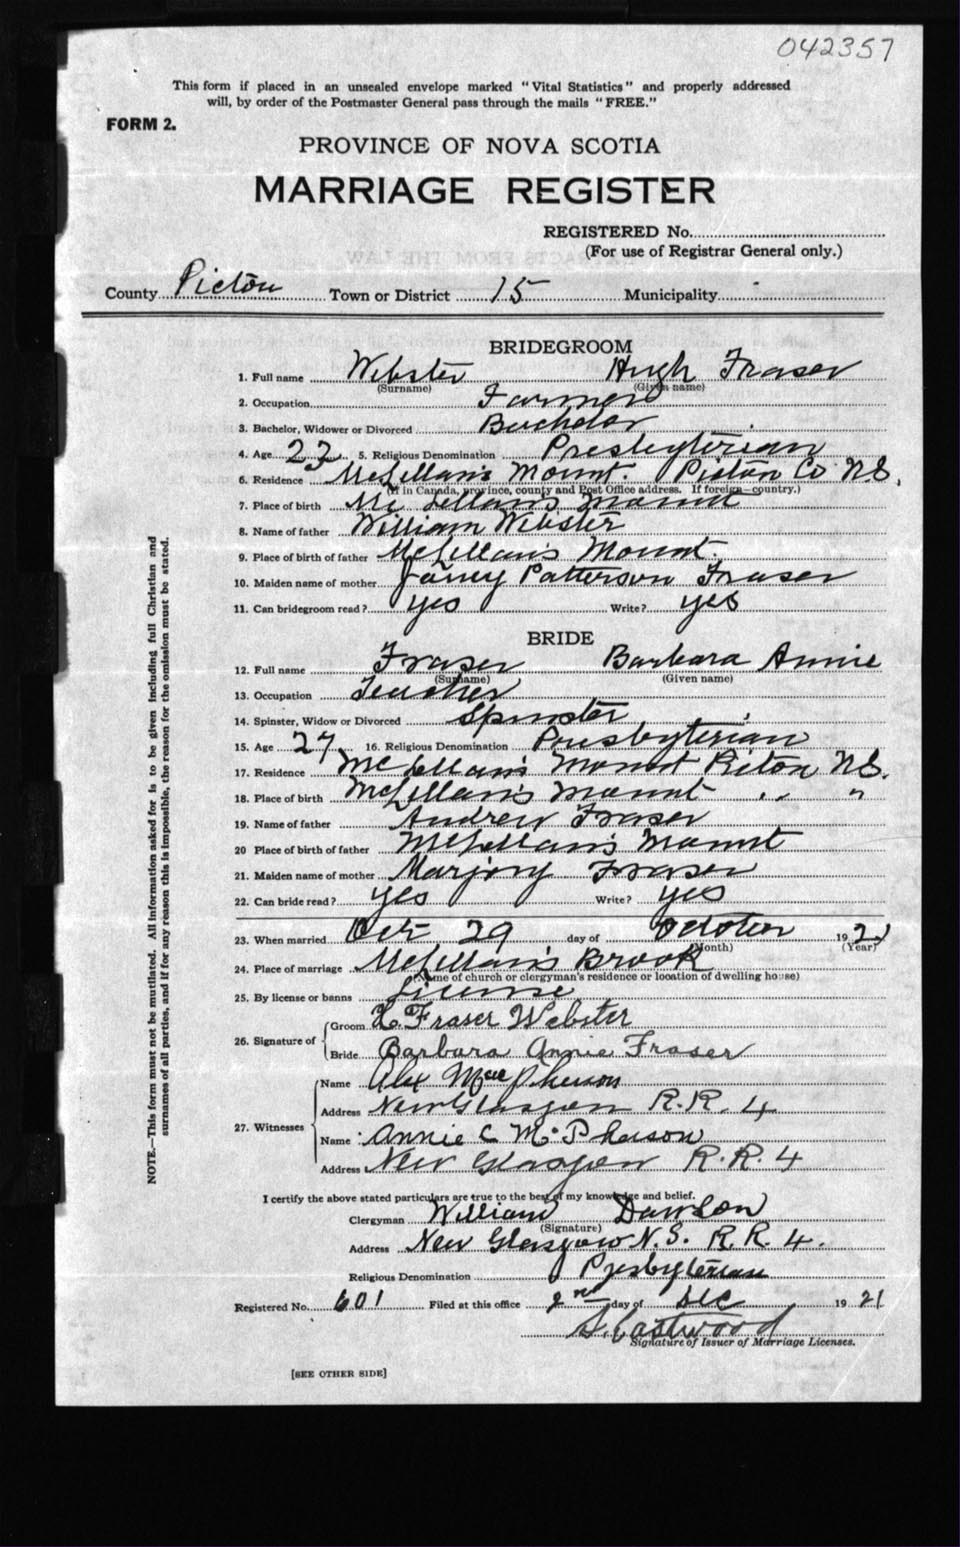 042357
This form if placed in an unsealed envelope marked "Vital Statistics" and properly addressed
will, by order of the Postmaster General pass through the mails "FREE."
FORM 2.
PROVINCE OF NOVA SCOTIA
MARRIAGE REGISTER
REGISTERED No.
(For use of Registrar General only.)
County Pictou Town or District 15 Municipality
BRIDEGROOM
1. Full name Webster Hugh Fraser
(Surname) (Given name)
2. Occupation Farmer
3. Bachelor, Widower or Divorced Bachelor
4. Age 23 5. Religious Denomination Presbyterian
6. Residence McLellan's Mount Pictou Co N.S.
(If in Canada, province, county and Post Office address. If foreign—country.)
7. Place of birth McLellan's Mount
8. Name of father William Webster
9. Place of birth of father McLellan's Mount.
10. Maiden name of mother Patterson Fraser
11. Can bridegroom read? yes Write? yes
BRIDE
12. Full name Fraser Barbara Annie
(Surname) (Given name)
13. Occupation Teacher
14. Spinster, Widow or Divorced Spinster
15. Age 27 16. Religious Denomination Presbyterian
17. Residence McLellan's Mount Pictou N.S.
18. Place of birth McLellan's Mount " "
19. Name of father Andrew Fraser
20 Place of birth of father McLellan's Mount
21. Maiden name of mother Marjory Fraser
22. Can bride read? yes Write? yes
23. When married Oct 29 day of October 1921
(Month) (Year)
24. Place of marriage McLellan's Brook
(Name of church or clergyman's residence or location of dwelling house)
25. By license or banns License
26. Signature of Groom H. Fraser Webster
Bride Barbara Annie Fraser
27. Witnesses Name Alex MacPherson
Address New Glasgow R.R. 4
Name Annie C McPherson
Address New Glasgow R.R. 4
I certify the above stated particulars are true to the best of my knowledge and belief.
Clergyman William Dawson
(Signature)
Address New Glasgow N.S. R.R. 4.
Religious Denomination Presbyterian
Registered No. 601 Filed at this office 2nd day of Dec 1921
S. Eastwood
Signature of Issuer of Marriage Licenses.
[SEE OTHER SIDE]
NOTE.—This form must not be mutilated. All information asked for is to be given including full Christian and
surnames of all parties, and if for any reason this is impossible, the reason for the omission must be stated.